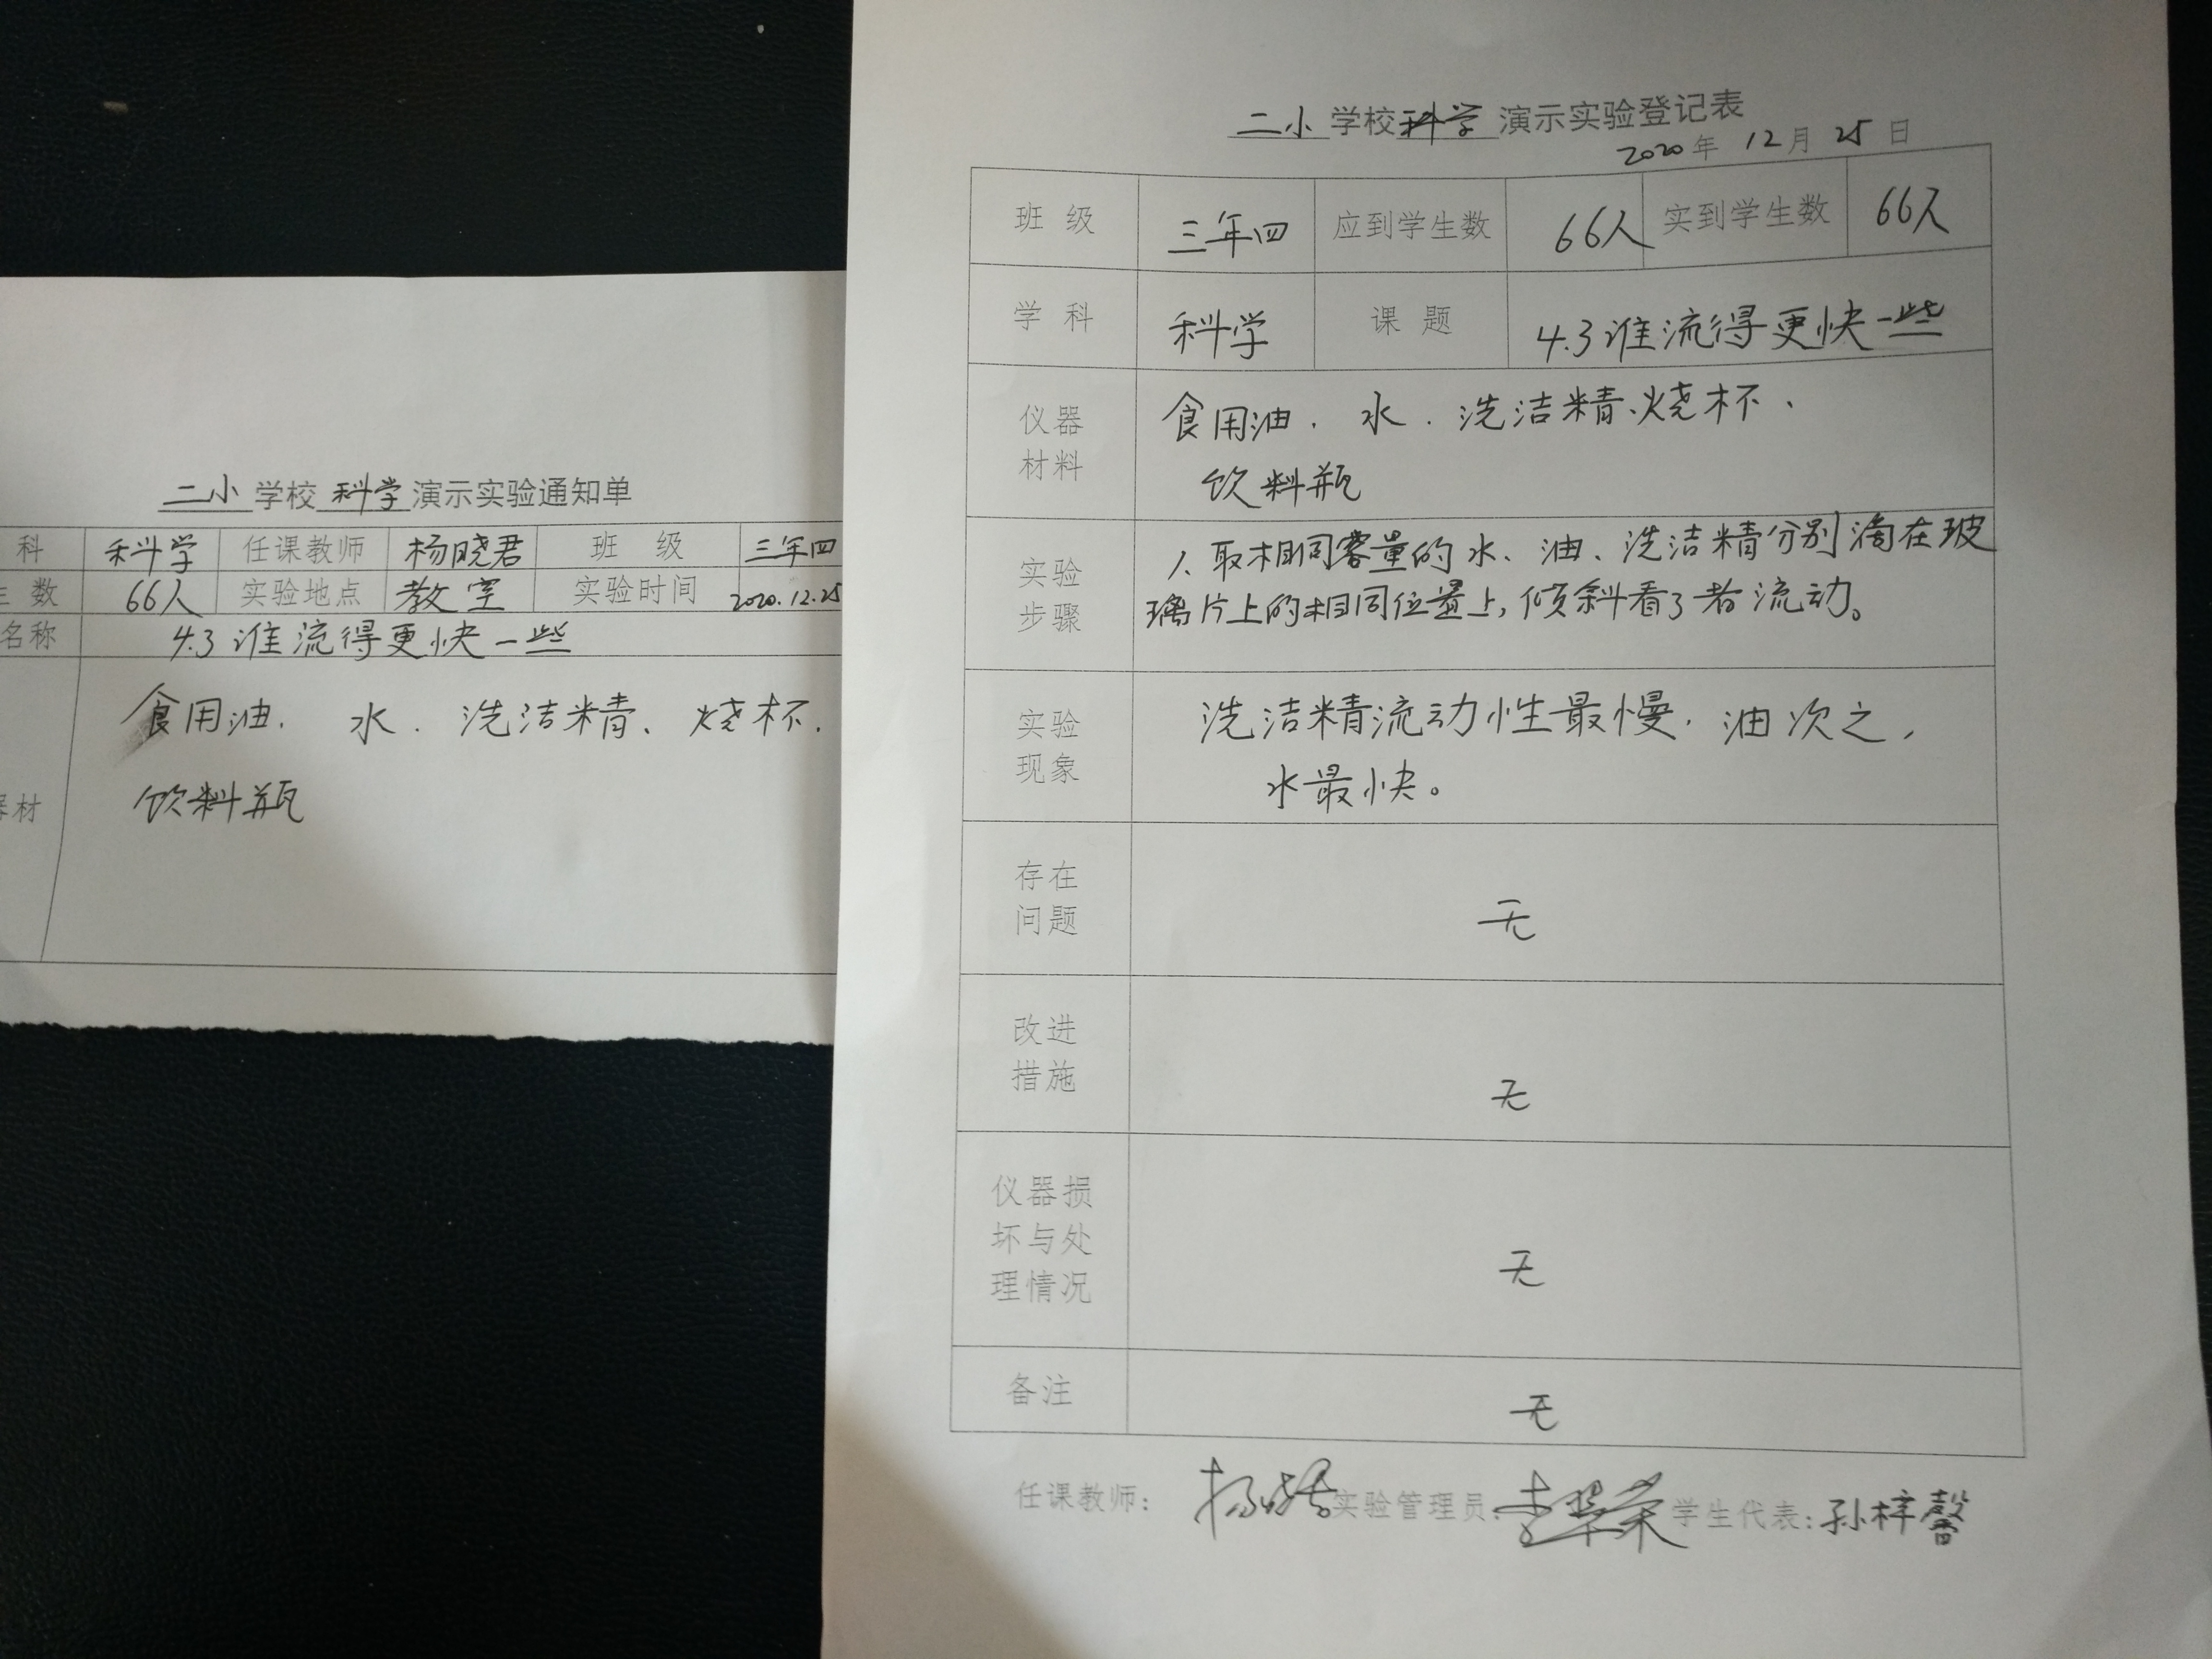 二小学校科学演示实验通知单
科 科学 任课教师 杨晓君 班 级 三年四
生 数 66人 实验地点 教室 实验时间 2020.12.25
名称 4.3 谁流得更快一些
食用油. 水. 洗洁精、烧杯.
器材 饮料瓶
二小学校科学演示实验登记表
2020年 12月 25日
班 级 三年四 应到学生数 66人 实到学生数 66人
学 科 科学 课 题 4.3 谁流得更快一些
仪器 食用油. 水. 洗洁精、烧杯、
材料 饮料瓶
实验 1、取相同容量的水、油、洗洁精分别滴在玻
步骤 璃片上的相同位置上,倾斜看3者流动。
实验 洗洁精流动性最慢.油次之,
现象 水最快。
存在
问题 无
改进
措施 无
仪器损
坏与处 无
理情况
备注 无
任课教师: 实验管理员: 学生代表:孙梓馨